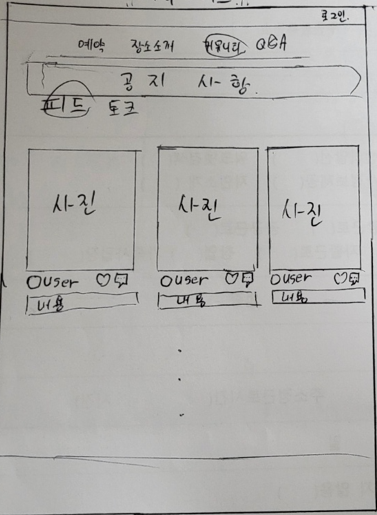 로그인.
예약 장소소개 커뮤니티 Q&A
공 지 사 항
피드 토크
사진 사진 사진
user user user
내용 내용 내용